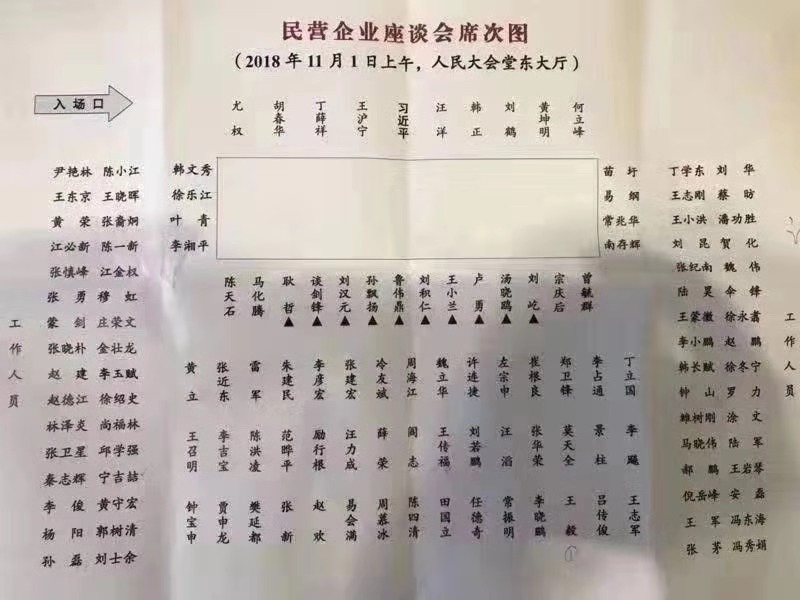 民营企业座谈会席次图
（2018年11月1日上午，人民大会堂东大厅）
入场口
尤权 胡春华 丁薛祥 王沪宁 习近平 汪洋 韩正 刘鹤 黄坤明 何立峰
尹艳林 陈小江
王东京 王晓晖
黄荣 张裔炯
江必新 陈一新
张慎峰 江金权
张勇 穆虹
蒙剑 庄荣文
张晓朴 金壮龙
赵建 李玉赋
赵德江 徐绍史
林泽炎 尚福林
张卫星 邱学强
秦志辉 宁吉喆
李俊 黄守宏
杨阳 郭树清
孙磊 刘士余
工作人员
韩文秀
徐乐江
叶青
李湘平
苗圩
易纲
常兆华
南存辉
陈天石 马化腾 耿哲▲ 谈剑锋▲ 刘汉元▲ 孙飘扬▲ 鲁伟鼎▲ 刘积仁▲ 王小兰▲ 卢勇▲ 汤晓鸥▲ 刘屹▲ 宗庆后 曾毓群
黄立 张近东 雷军 朱建民 李彦宏 张建宏 冷友斌 周海江 魏立华 许连捷 左宗申 崔根良 郑卫锋 李占通 丁立国
王召明 李吉宝 陈洪凌 范晔平 励行根 汪力成 薛荣 阎志 王传福 刘若鹏 汪滔 张华荣 莫天全 景柱 李飚
钟宝申 贾申龙 樊延都 张新 赵欢 易会满 周慕冰 陈四清 田国立 任德奇 常振明 李晓鹏 王毅 吕传俊 王志军
丁学东 刘华
王志刚 蔡昉
王小洪 潘功胜
刘昆 贺化
张纪南 魏伟
陆昊 伞锋
王蒙徽 徐永翥
李小鹏 赵鹏
韩长赋 徐冬宁
钟山 罗力
雒树刚 涂文
马晓伟 陆军
郝鹏 王岩琴
倪岳峰 安磊
王军 冯东海
张茅 冯秀娟
工作人员